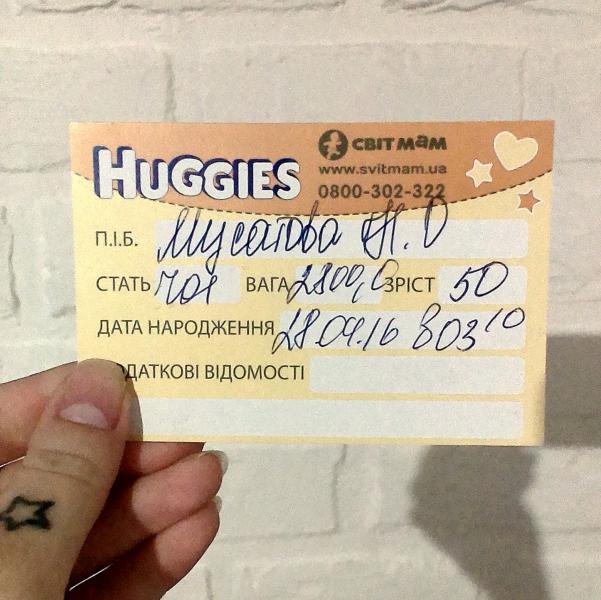 HUGGIES
СВІТ МАМ
www.svitmam.ua
0800-302-322
П.І.Б. Мусатова Н. О
СТАТЬ чол ВАГА 2800,0 ЗРІСТ 50
ДАТА НАРОДЖЕННЯ 28.04.16 803 10
ДОДАТКОВІ ВІДОМОСТІ